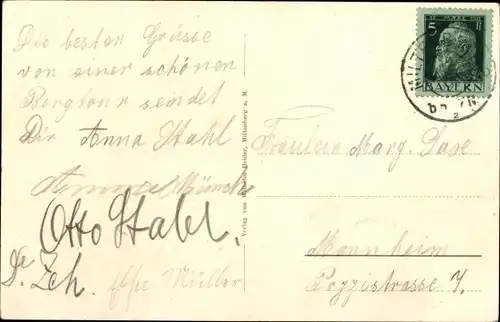 Die besten Grüsse
von einer schönen
Bergtour sendet
Dir Anna Stahl
Otto Stahl.
Dr. Zeh. Else Müller
Verlag von Wilhelm Heider, Miltenberg a. M.
5 Pf
BAYERN
MILT
Fräulein Marg.
Mannheim
Pozzistrasse 7.